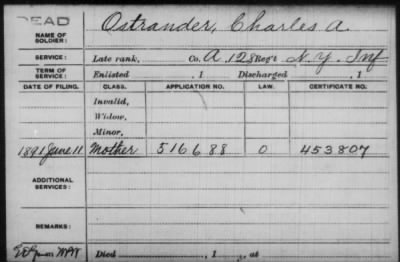 DEAD
NAME OF SOLDIER: Ostrander, Charles A.
SERVICE: Late rank, Co. A, 128 Reg't N.Y. Inf
TERM OF SERVICE: Enlisted , 1 Discharged , 1
DATE OF FILING. CLASS. APPLICATION NO. LAW. CERTIFICATE NO.
Invalid,
Widow,
Minor,
1891 June 11 Mother 516688 O 453807
ADDITIONAL SERVICES:
REMARKS:
Died , 1 , at